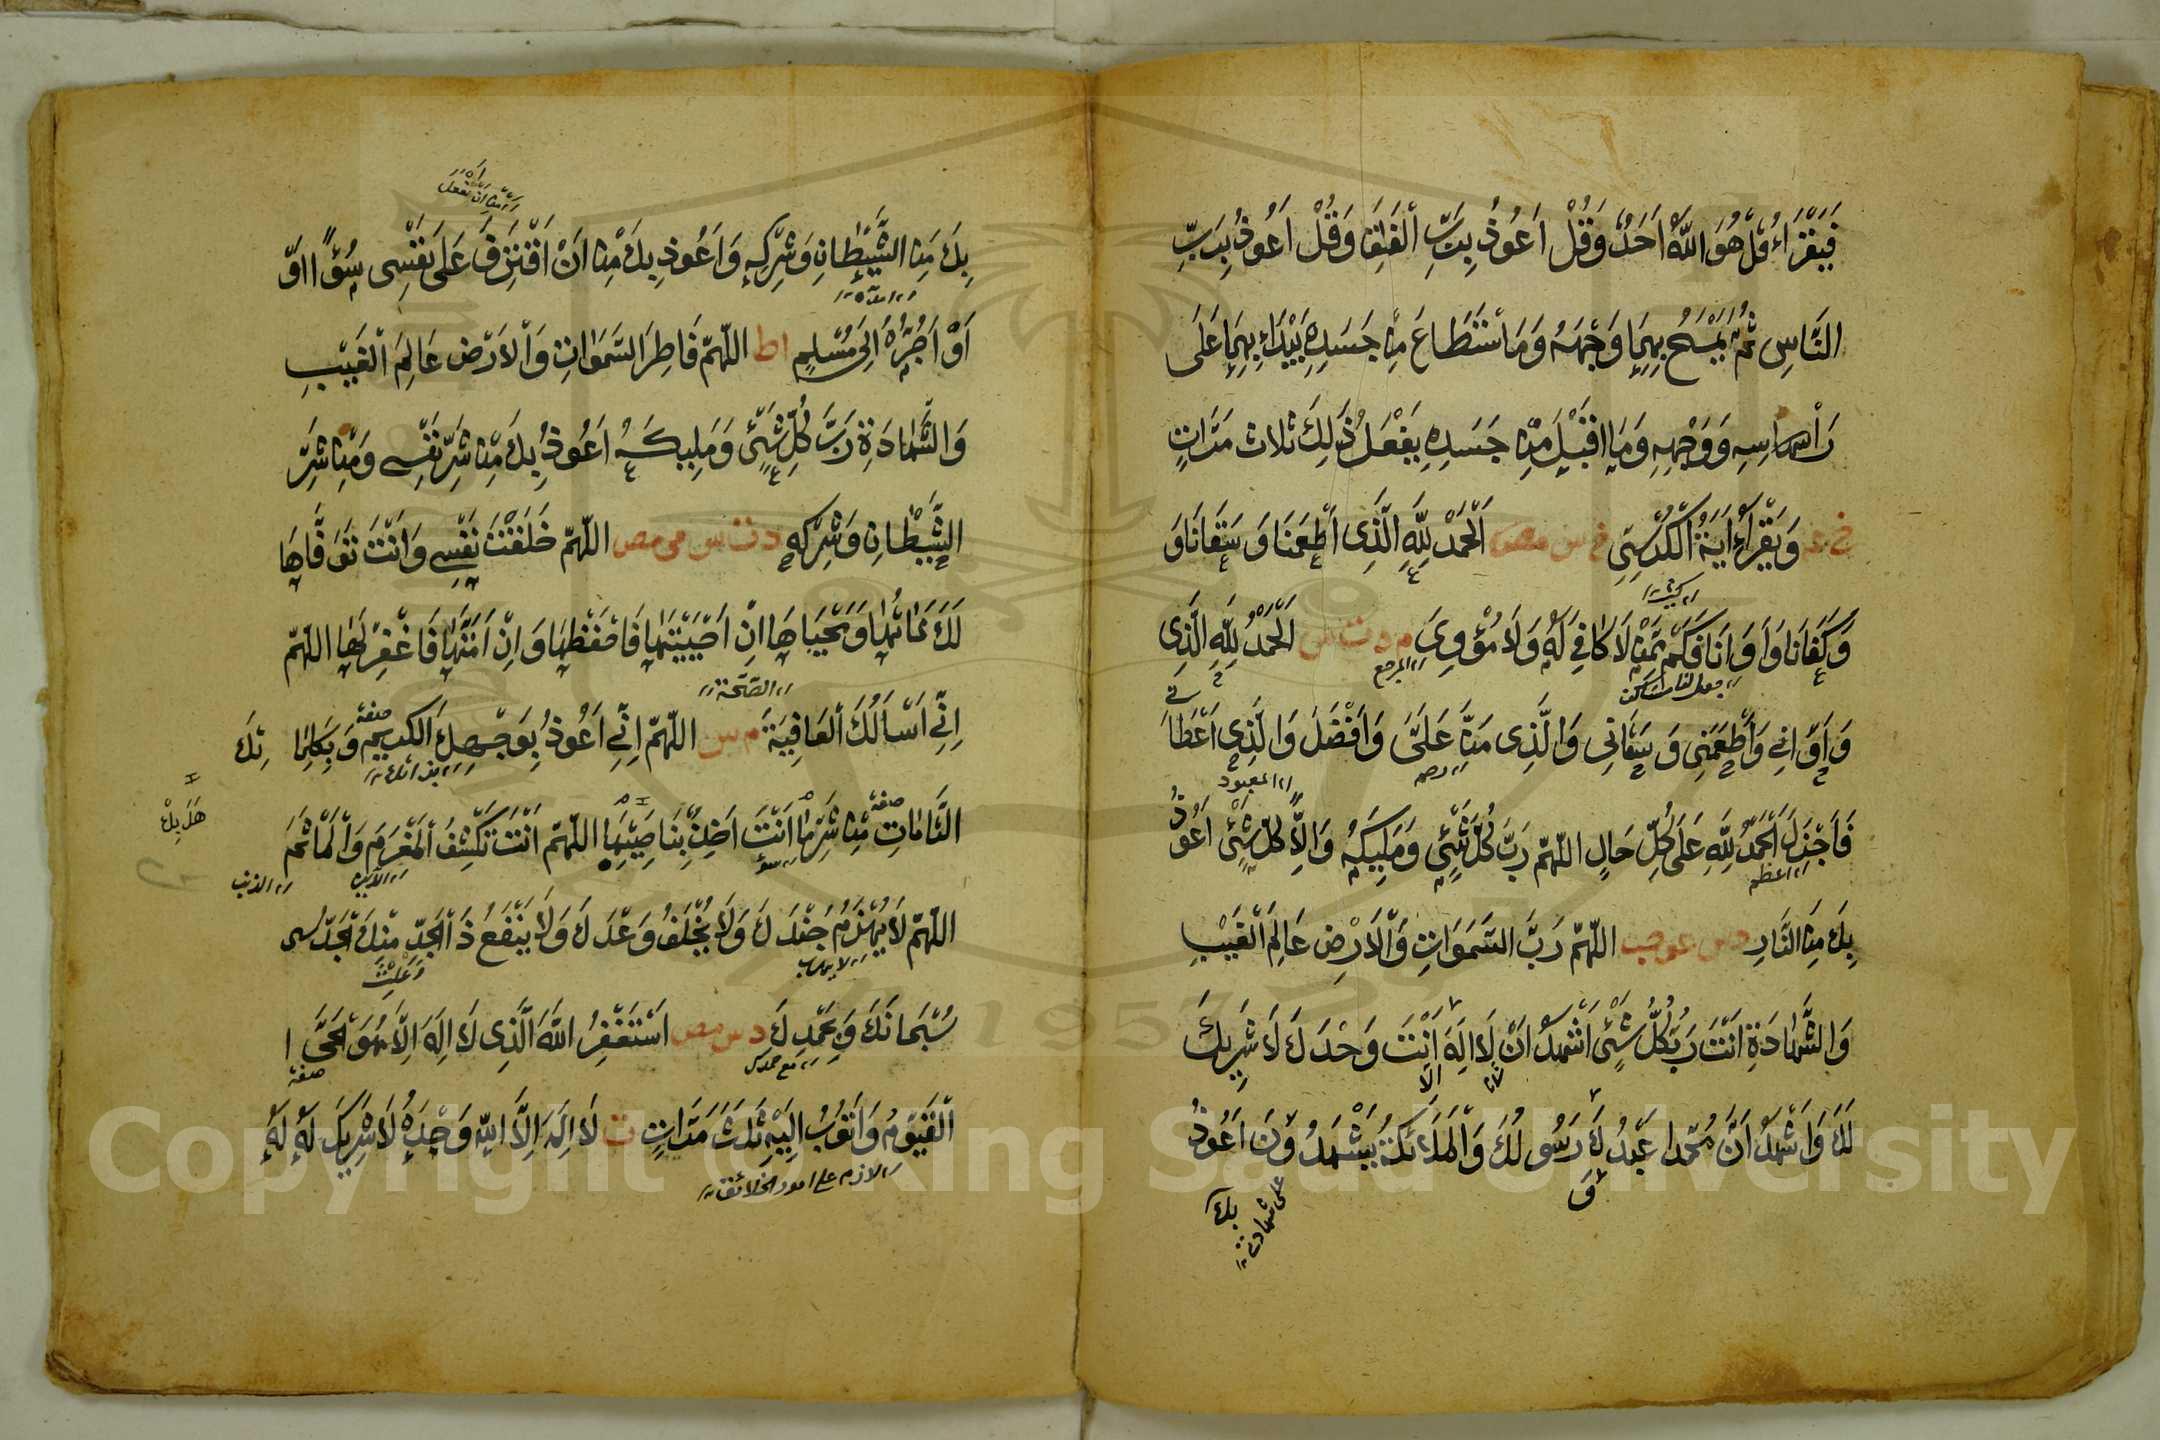 فَيَقْرَاءُ قُلْ هُوَ اللّٰهُ اَحَدٌ وَقُلْ اَعُوذُ بِرَبِّ الْفَلَقِ وَقُلْ اَعُوذُ بِرَبِّ
النَّاسِ ثُمَّ يَمْسَحُ بِهِمَا وَجْهَهُ وَمَا اسْتَطَاعَ مِنْ جَسَدِهِ يَبْدَاءُ بِهِمَا عَلَى
رَأْسِهِ وَوَجْهِهِ وَمَا اقْبَلَ مِنْ جَسَدِهِ يَفْعَلُ ذٰلِكَ ثلاث مَرَّاتٍ
خ عه وَيَقْرَأُ اٰيَةَ الْكُرْسِيِّ خ س مص اَلْحَمْدُ لِلّٰهِ الَّذِى اَطْعَمَنَا وَسَقَانَا وَ
وَكَفَانَا وَاٰوَانَا فَكَمْ مِمَّنْ لَا كَافِيَ لَهُ وَلَا مُؤْوِىَ م د ت س اَلْحَمْدُ لِلّٰهِ الَّذِى
وَاٰوَانِي وَاَطْعَمَنِي وَسَقَانِى وَالَّذِى مَنَّ عَلَىَّ وَاَفْضَلَ وَالَّذِى اَعْطَانِي
فَاَجْزَلَ اَلْحَمْدُ لِلّٰهِ عَلَى كُلِّ حَالٍ اللّٰهُمَّ رَبَّ كُلِّ شَيْئٍ وَمَلِيكَهُ وَاِلٰهَ كُلِّ شَيْئٍ اَعُوذُ
بِكَ مِنَ النَّارِ د س عو حب اللّٰهُمَّ رَبَّ السَّمَوَاتِ وَالْاَرْضِ عَالِمَ الْغَيْبِ
وَالشَّهَادَةِ اَنْتَ رَبُّ كُلِّ شَيْئٍ اَشْهَدُ اَنْ لَا اِلٰهَ اِلَّا اَنْتَ وَحْدَكَ لَا شَرِيكَ
لَكَ وَاَشْهَدُ اَنَّ مُحَمَّدًا عَبْدُكَ وَرَسُولُكَ وَالْمَلَائِكَةُ يَشْهَدُونَ اَعُوذُ
بك
بِكَ مِنَ الشَّيْطَانِ وَشِرْكِهِ وَاَعُوذِ بِكَ مِنْ اَنْ اَقْتَرِفَ عَلَى نَفْسِى سُوْءًا اَوْ
اَوْ اَجُرَّهُ اِلَى مُسْلِمٍ اط اللّٰهُمَّ فَاطِرَ السَّمَوَاتِ وَالْاَرْضِ عَالِمَ الْغَيْبِ
وَالشَّهَادَةِ رَبَّ كُلِّ شَيْئٍ وَمَلِيكَهُ اَعُوذُ بِكَ مِنْ شَرِّ نَفْسِي وَمِنْ شَرِّ
الشَّيْطَانِ وَشِرْكِهِ د ت س مى مص اللّٰهُمَّ خَلَقْتَ نَفْسِي وَاَنْتَ تَوَفَّاهَا
لَكَ مَمَاتُهَا وَمَحْيَاهَا اِنْ اَحْيَيْتَهَا فَاحْفَظْهَا وَاِنْ اَمَتَّهَا فَاغْفِرْ لَهَا اللّٰهُمَّ
اِنِّي اَسْاَلُكَ الْعَافِيَةَ م س اللّٰهُمَّ اِنِّي اَعُوذُ بِوَجْهِكَ الْكَرِيمِ وَبِكَلِمَاتِكَ
التَّامَّاتِ مِنْ شَرِّ مَا اَنْتَ اٰخِذٌ بِنَاصِيَتِهَا اللّٰهُمَّ اَنْتَ تَكْشِفُ الْمَغْرَمَ وَالْمَاْثَمَ
اللّٰهُمَّ لَا يُهْزَمُ جُنْدُكَ وَلَا يُخْلَفُ وَعْدُكَ وَلَا يَنْفَعُ ذَا الْجَدِّ مِنْكَ الْجَدُّ
سُبْحَانَكَ وَبِحَمْدِكَ د س مص اَسْتَغْفِرُ اللّٰهَ الَّذِى لَا اِلٰهَ اِلَّا هُوَ الْحَىَّ
الْقَيُّومُ وَاَتُوبُ اِلَيْهِ ثَلٰثَ مَرَّاتٍ ت لَا اِلٰهَ اِلَّا اللّٰهُ وَحْدَهُ لَا شَرِيكَ لَهُ لَهُ
الازم على امور الخلائق
Copyright © King Saud University
1957